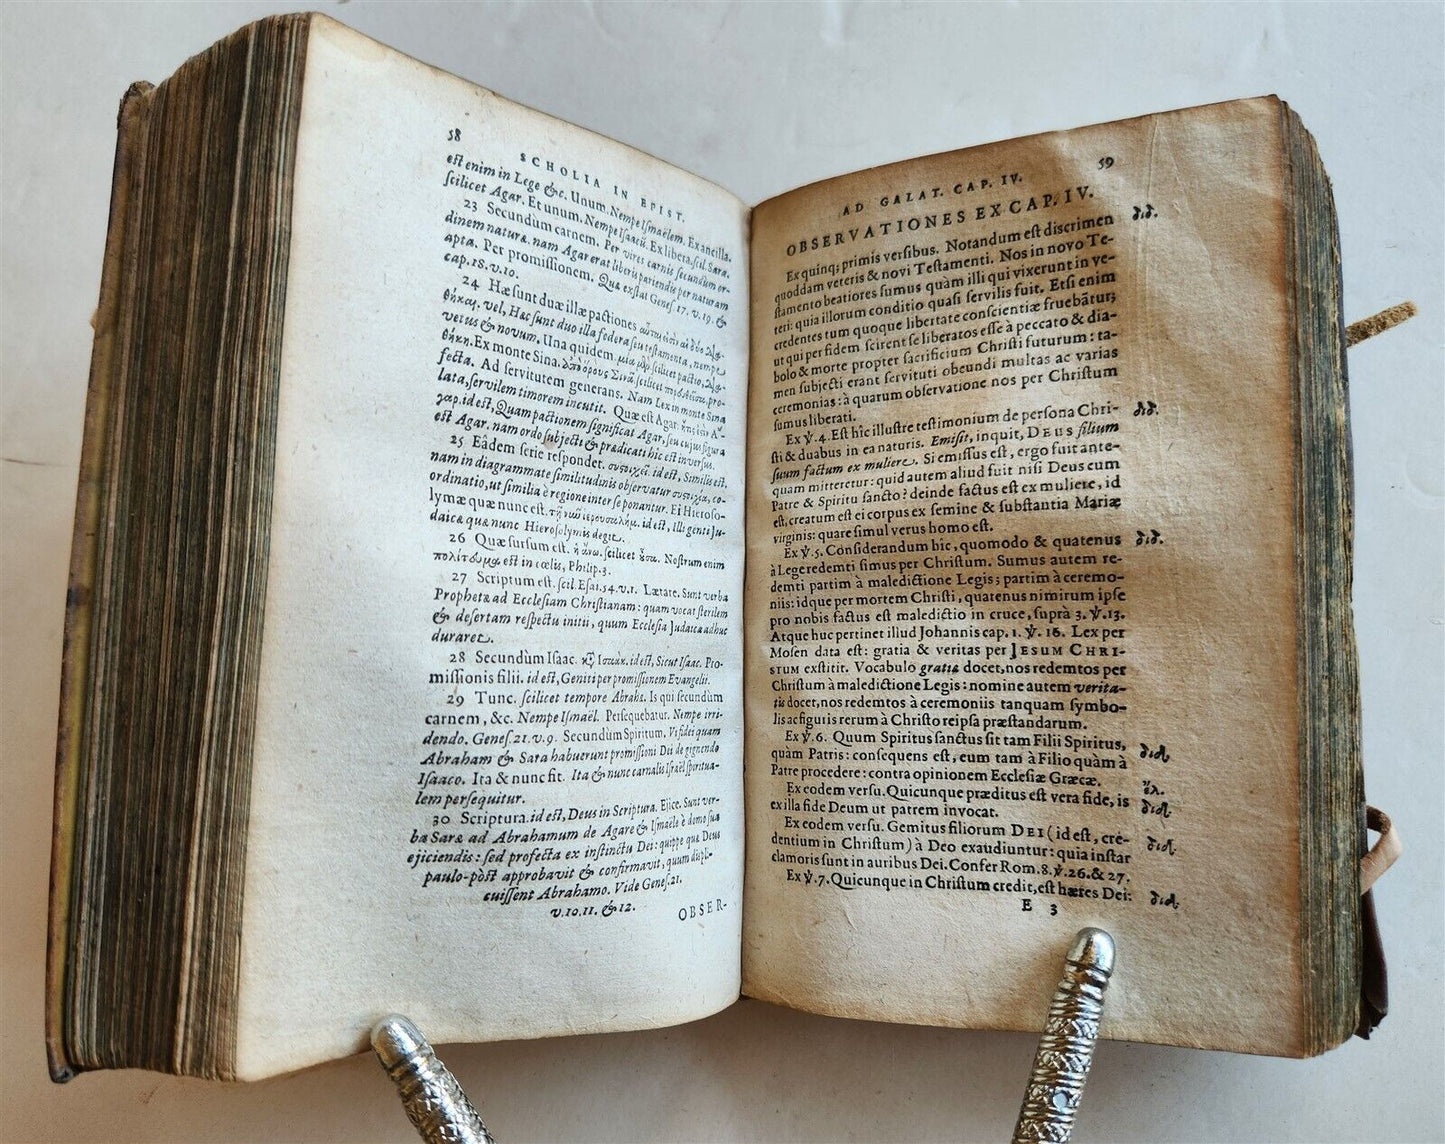 58
SCHOLIA IN EPIST.
est enim in Lege &c. Unum. Nempe Ismaëlem. Ex ancilla.
scilicet Agar. Et unum. Nempe Isaacū. Ex libera. scil. Sara.
23 Secundùm carnem. Per vires carnis secundum or-
dinem naturæ. nam Agar erat liberis pariendis per naturam
apta. Per promissionem. Quæ extat Genes. 17. v. 19. &
cap. 18. v. 10.
24 Hæ sunt duæ illæ pactiones
θῆκαι. vel, Hæc sunt duo illa fœdera seu testamenta, nempe
vetus & novum. Una quidem. scilicet pactio,
θήκη. Ex monte Sina. scilicet pro-
fecta. Ad servitutem generans. Nam Lex in monte Sina
lata, servilem timorem incutit. Quæ est Agar.
γαρ. id est, Quam pactionem significat Agar, seu cujus figura
est Agar. nam ordo subjecti & prædicati hîc est inversus.
25 Eâdem serie respondet. συστοιχεῖ. id est, Similis est,
nam in diagrammate similitudinis observatur συστοιχία, co-
ordinatio, ut similia è regione inter se ponantur. Ei Hieroso-
lymæ quæ nunc est. τῇ νῦν ἱερουσαλήμ. id est, Illi genti Ju-
daicæ quæ nunc Hierosolymis degit.
26 Quæ sursum est. ἡ ἄνω. scilicet ὖσα. Nostrum enim
πολίτευμα est in cœlis, Philip. 3.
27 Scriptum est. scil. Esai. 54. v. 1. Lætare. Sunt verba
Prophetæ ad Ecclesiam Christianam: quam vocat sterilem
& desertam respectu initii, quum Ecclesia Judaica adhuc
duraret.
28 Secundùm Isaac. κτ̃ Ισαάκ. id est, Sicut Isaac. Pro-
missionis filii. id est, Geniti per promissionem Evangelii.
29 Tunc. scilicet tempore Abrahæ. Is qui secundùm
carnem, &c. Nempe Ismaël. Persequebatur. Nempe irri-
dendo. Genes. 21. v. 9. Secundùm Spiritum. Vi fidei quam
Abraham & Sara habuerunt promissioni Dei de gignendo
Isaaco. Ita & nunc fit. Ita & nunc carnalis Israël spiritua-
lem persequitur.
30 Scriptura. id est, Deus in Scriptura. Ejice. Sunt ver-
ba Saræ ad Abrahamum de Agare & Ismaële è domo sua
ejiciendis: sed profecta ex instinctu Dei: quippe quæ Deus
paulo-pòst approbavit & confirmavit, quum displi-
cuissent Abrahamo. Vide Genes. 21.
v. 10. 11. & 12.
OBSER-
59
AD GALAT. CAP. IV.
OBSERVATIONES EX CAP. IV.
Ex quinq; primis versibus. Notandum est discrimen
διδ.
quoddam veteris & novi Testamenti. Nos in novo Te-
stamento beatiores sumus quàm illi qui vixerunt in ve-
teri: quia illorum conditio quasi servilis fuit. Etsi enim
credentes tum quoque libertate conscientiæ fruebātur;
ut qui per fidem scirent se liberatos esse à peccato & dia-
bolo & morte propter sacrificium Christi futurum: ta-
men subjecti erant servituti obeundi multas ac varias
ceremonias: à quarum observatione nos per Christum
sumus liberati.
Ex ℣. 4. Est hîc illustre testimonium de persona Chri-
διδ.
sti & duabus in ea naturis. Emisit, inquit, DEUS filium
suum factum ex muliere. Si emissus est, ergo fuit ante-
quam mitteretur: quid autem aliud fuit nisi Deus cum
Patre & Spiritu sancto? deinde factus est ex muliere, id
est, creatum est ei corpus ex semine & substantia Mariæ
virginis: quare simul verus homo est.
Ex ℣. 5. Considerandum hîc, quomodo & quatenus
διδ.
à Lege redemti simus per Christum. Sumus autem re-
demti partim à maledictione Legis; partim à ceremo-
niis: idque per mortem Christi, quatenus nimirum ipse
pro nobis factus est maledictio in cruce, suprà 3. ℣. 13.
Atque huc pertinet illud Johannis cap. 1. ℣. 16. Lex per
Mosen data est: gratia & veritas per JESUM CHRI-
STUM exstitit. Vocabulo gratiæ docet, nos redemtos per
Christum à maledictione Legis: nomine autem verita-
tis docet, nos redemtos à ceremoniis tanquam symbo-
lis ac figuris rerum à Christo reipsa præstandarum.
Ex ℣. 6. Quum Spiritus sanctus sit tam Filii Spiritus,
διδ.
quàm Patris: consequens est, eum tam à Filio quàm à
Patre procedere: contra opinionem Ecclesiæ Græcæ.
ἔλ.
Ex eodem versu. Quicunque præditus est vera fide, is
διδ.
ex illa fide Deum ut patrem invocat.
Ex eodem versu. Gemitus filiorum DEI (id est, cre-
διδ.
dentium in Christum) à Deo exaudiuntur: quia instar
clamoris sunt in auribus Dei. Confer Rom. 8. ℣. 26. & 27.
Ex ℣. 7. Quicunque in Christum credit, est hæres Dei:
διδ.
E 3